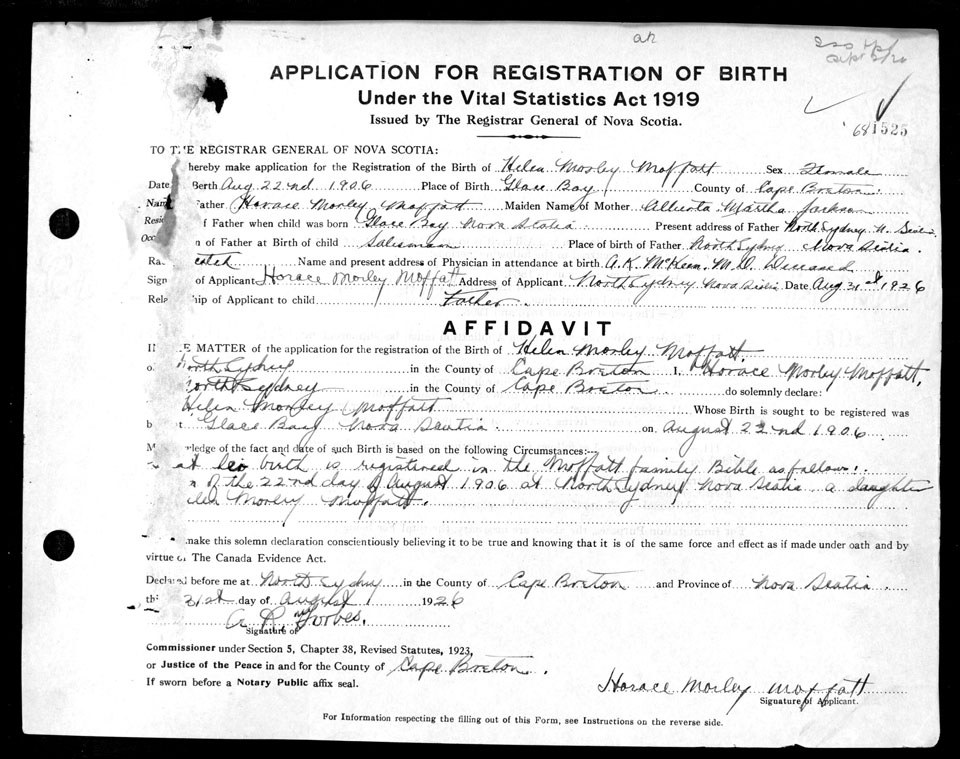 APPLICATION FOR REGISTRATION OF BIRTH
Under the Vital Statistics Act 1919
Issued by The Registrar General of Nova Scotia.
681525
TO THE REGISTRAR GENERAL OF NOVA SCOTIA:
hereby make application for the Registration of the Birth of Helen Morley Moffatt Sex Female
Date Berth Aug 22nd 1906 Place of Birth Glace Bay County of Cape Breton
Name Father Horace Morley Moffatt Maiden Name of Mother Alberta Martha Jackson
Resid of Father when child was born Glace Bay Nova Scotia Present address of Father North Sydney N. Scotia
Occ n of Father at Birth of child Salesman Place of birth of Father North Sydney Nova Scotia
Ra Name and present address of Physician in attendance at birth A. K. McKean. M. D. Diceased
Sign of Applicant Horace Morley Moffatt Address of Applicant North Sydney Nova Scotia Date Aug 31st 1926
Rela ship of Applicant to child Father.
AFFIDAVIT
I E MATTER of the application for the registration of the Birth of Helen Morley Moffatt.
o North Sydney in the County of Cape Breton I, Horace Morley Moffatt,
North Sydney in the County of Cape Breton do solemnly declare:
Helen Morley Moffatt Whose Birth is sought to be registered was
b Glace Bay Nova Scotia on August 22nd 1906
M ledge of the fact and date of such Birth is based on the following Circumstances:
at birth is registered in the Moffatt family Bible as follow:
n of the 22nd day of August 1906 at North Sydney Nova Scotia a daughter
len Morley Moffatt.
make this solemn declaration conscientiously believing it to be true and knowing that it is of the same force and effect as if made under oath and by
virtue of The Canada Evidence Act.
Declared before me at North Sydney in the County of Cape Breton and Province of Nova Scotia
th 31st day of August 1926
A R Forbes.
Signature of
Commissioner under Section 5, Chapter 38, Revised Statutes, 1923,
or Justice of the Peace in and for the County of Cape Breton.
If sworn before a Notary Public affix seal.
Horace Morley Moffatt
Signature of Applicant.
For Information respecting the filling out of this Form, see Instructions on the reverse side.